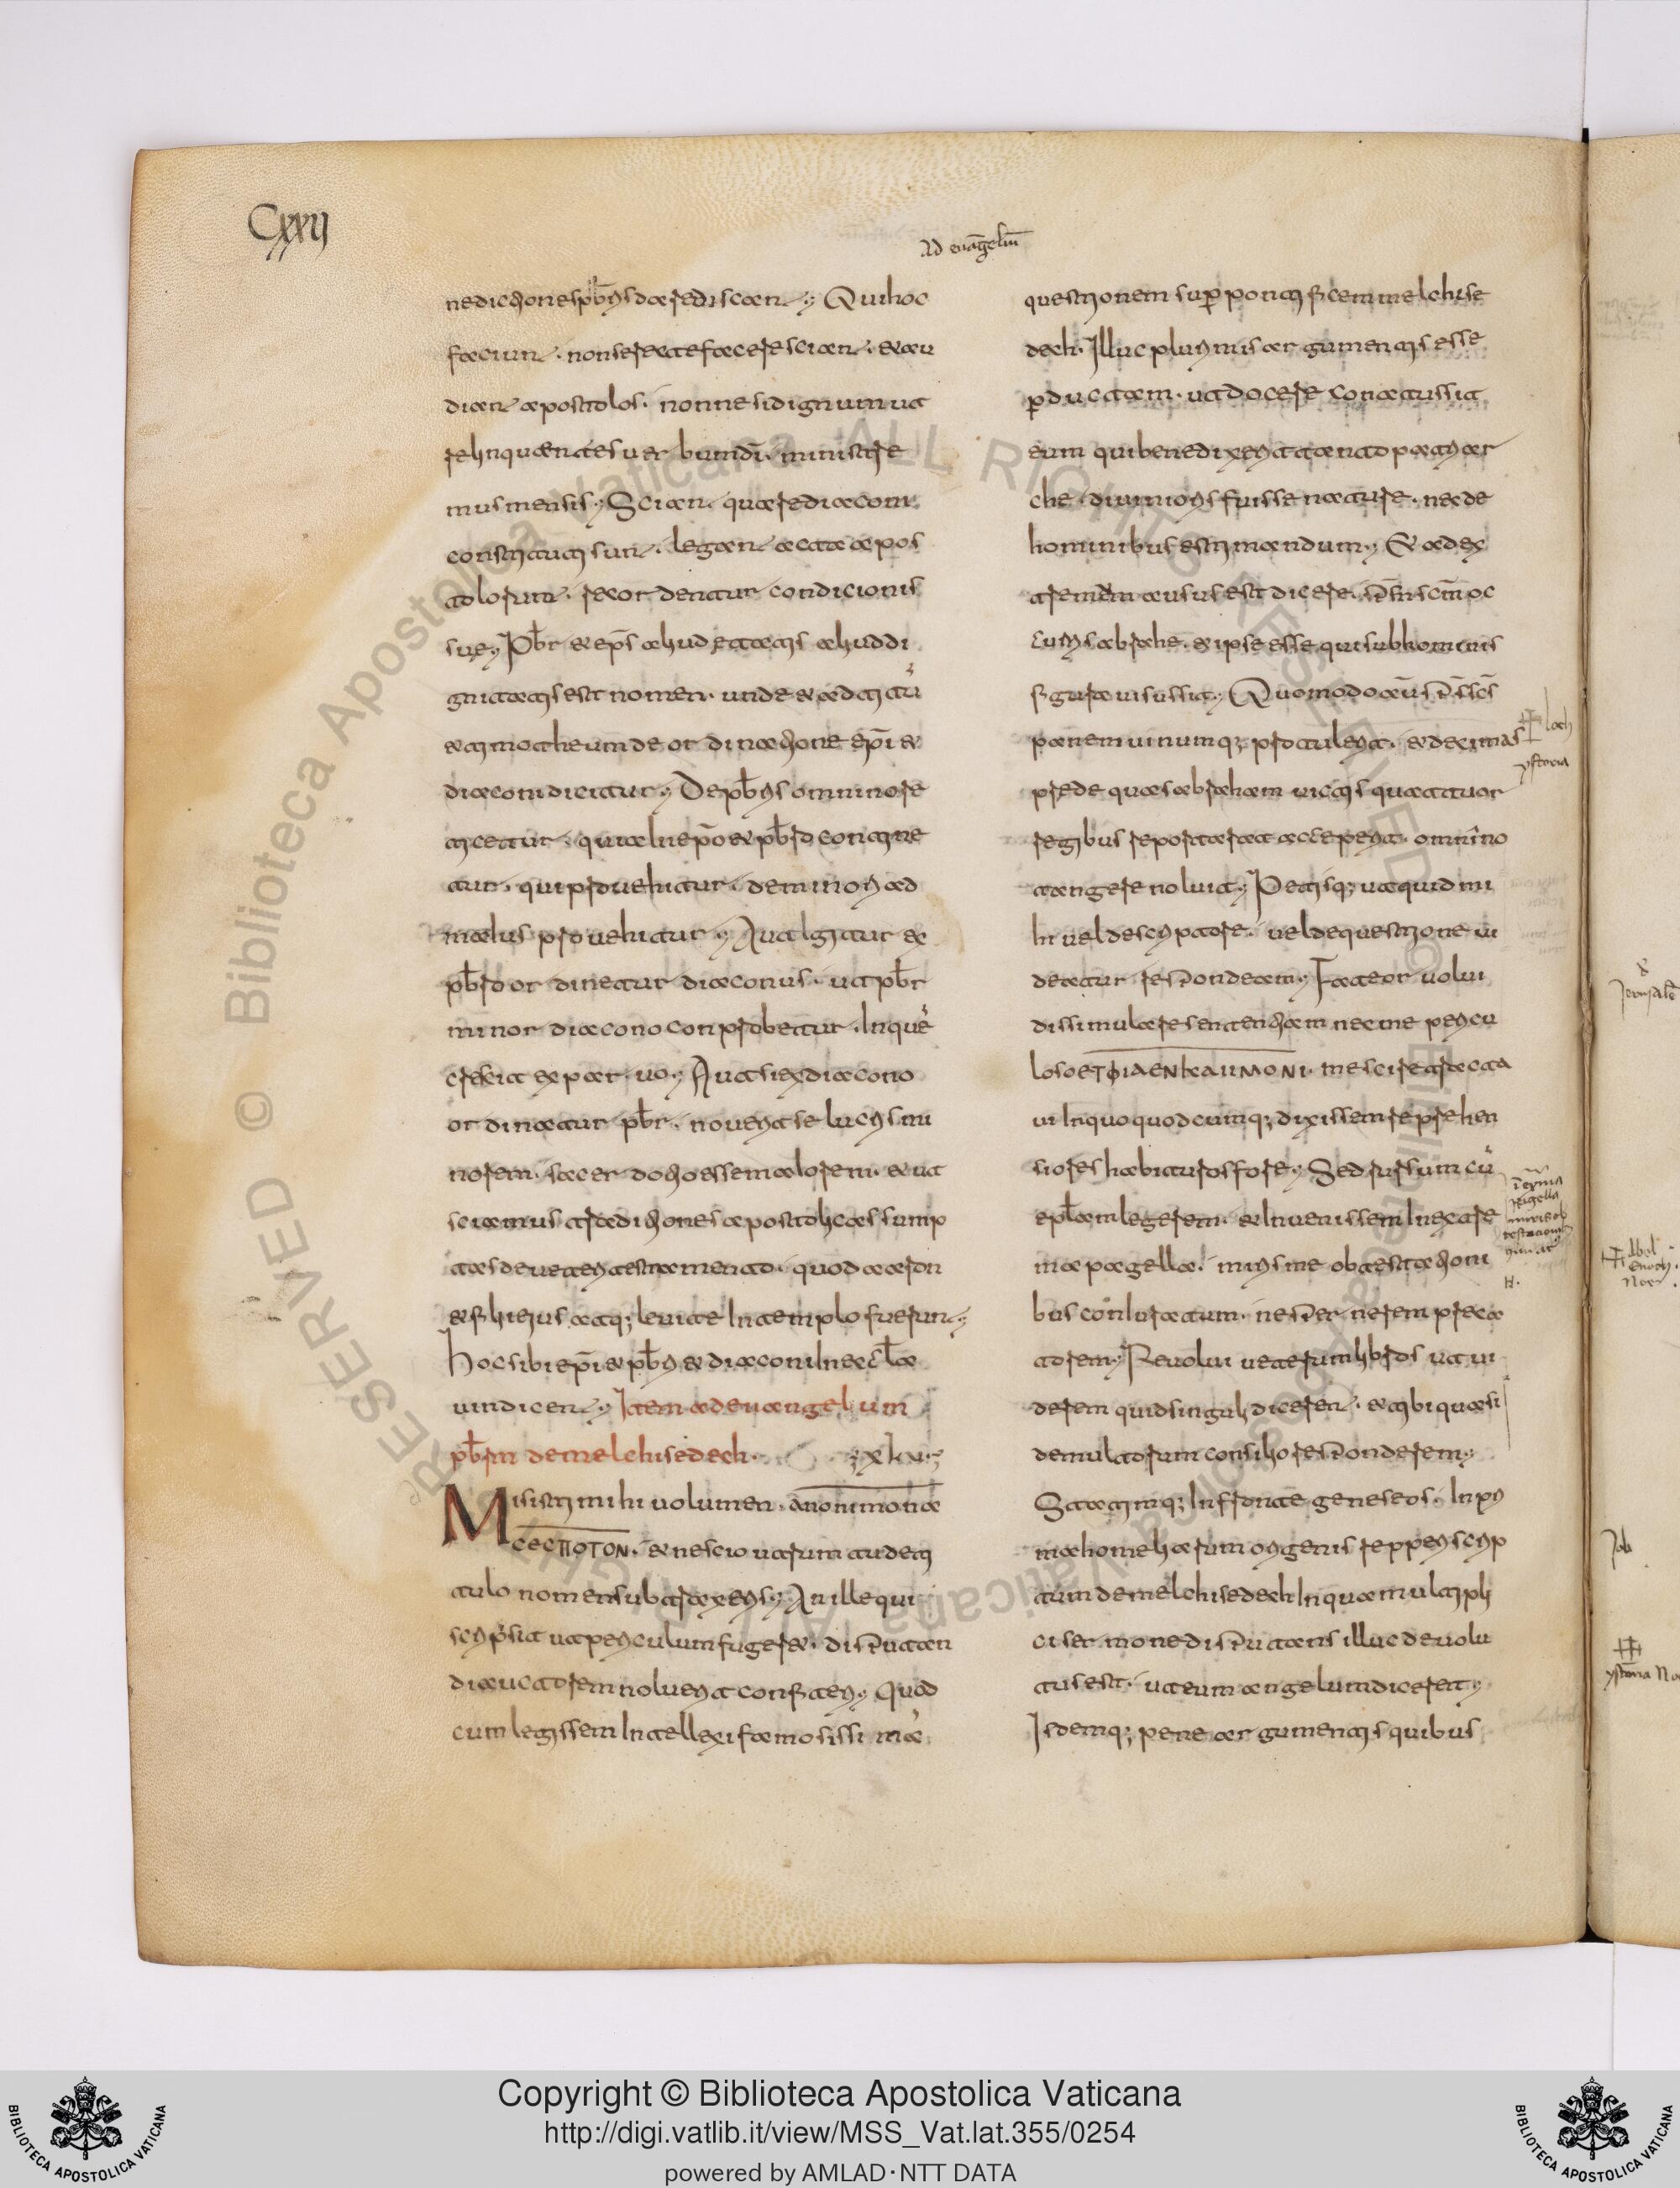 Cxxij
Ad euāgeliū
nedictiones pb̄ris daret discant; Qui hoc
faciunt. non se recte facere sciant. et au
diant apostolos. non nesi dignum ut
relinquentes uerbum dī. ministre
mus mensis; Sciant. quare diaconi
constituti sunt. legant acta apos
tolorum. recordentur condicionis
suę; Pb̄r et ep̄s aliud etatis aliud di
gnitatis est nomen. unde et ad titū
et timotheum de ordinatione ep̄i et
diaconi dicitur; De pb̄ris omnino re
ticetur. quia In ep̄o et pb̄ro contine
tur. qui prouehitur. de minori ad
maius prouehitur; Aut Igitur ex
pb̄ro ordinetur diaconus. ut pb̄r
minor diacono conprobetur. In quē
crescit ex paruo; Aut si ex diacono
ordinatur pb̄r. nouerit se lucris mi
norem. sacerdotio esse maiorem. et ut
sciamus traditiones apostolicas sump
tas de ueteri testamento. quod aaron
et filii eius atq; leuite In templo fuerunt;
Hoc sibi ep̄i et pb̄ri et diaconi In eccl̄a
uindicent; Item ad euangelum
pb̄rm de melchisedech. lxlv.
Misisti mihi uolumen. anonimon a
CECΠOTON. et nescio utrum tu de ti
tulo nomen subtraxeris; An ille qui
scripsit ut periculum fugeret. disputan
di auctorem noluerit confiteri; Quod
cum legissem Intellexi famosissimā
questionem sup pontificem melchise
dech. Illuc plurimis argumentis esse
pductam. ut docere conatus sit
eum qui benedixerit tanto patriar
che. diuinioris fuisse nature. nec de
hominibus estimandum; Et ad ex
tremum ausus est dicere. sp̄m scm̄ oc
cursisse abrahe. et ipse esse qui sub hominis
figura uisus sit; Quomodo autē sp̄s sc̄s
panem uinumq; protulerit. et decimas
prede quas abraham uictis quattuor
regibus reportarat acceperit. omnino
tangere noluit; Petisq; ut quid mi
hi uel de scriptore. uel de questione ui
deatur respondeam; Fateor uolui
dissimulare sententiam nec me pericu
loso et ΦIAENKAIIMONI. mescire tracta
ui In quo quodcumq; dixissem reprehen
siores habituros fore; Sed rursum cū
epl̄am legerem. et Inuenissem In extre
ma pagella. miris me obtestationi
bus coniuratum. ne sperneren preca
torem; Reuolui ueterum libros ut ui
derem quid singuli dicerent. et tibi quasi
de multorum consilio responderem;
Statimq; In fronte geneseos. In pri
ma homeliarum origenis repperi scrip
tum de melchisedech In qua multipli
ci sermone disputans illuc deuolu
tus est. ut eum angelum diceret;
Isdemq; pene argumentis quibus
ystoria
Abel
enoch
Noe
Job
ystoria No